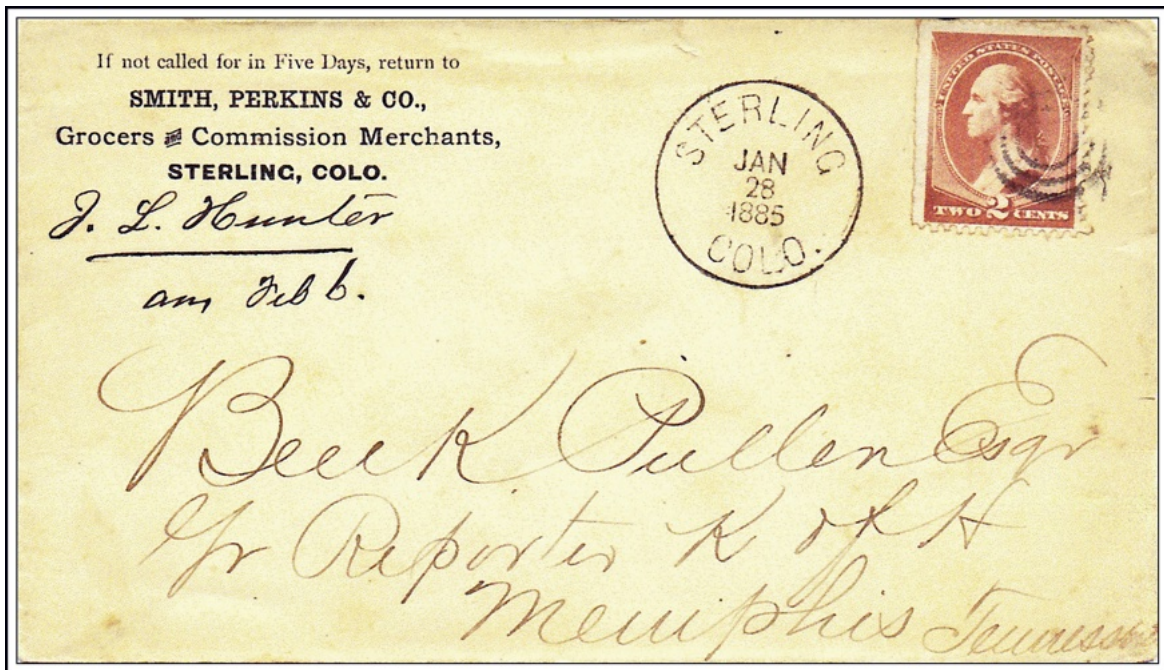 If not called for in Five Days, return to
SMITH, PERKINS & CO.,
Grocers and Commission Merchants,
STERLING, COLO.
J. L. Hunter
ans Feb 6.
STERLING
JAN
28
1885
COLO.
UNITED STATES POSTAGE
TWO 2 CENTS
Ben K Pullen Esqr
Gr Reporter K of H
Memphis Tennessee